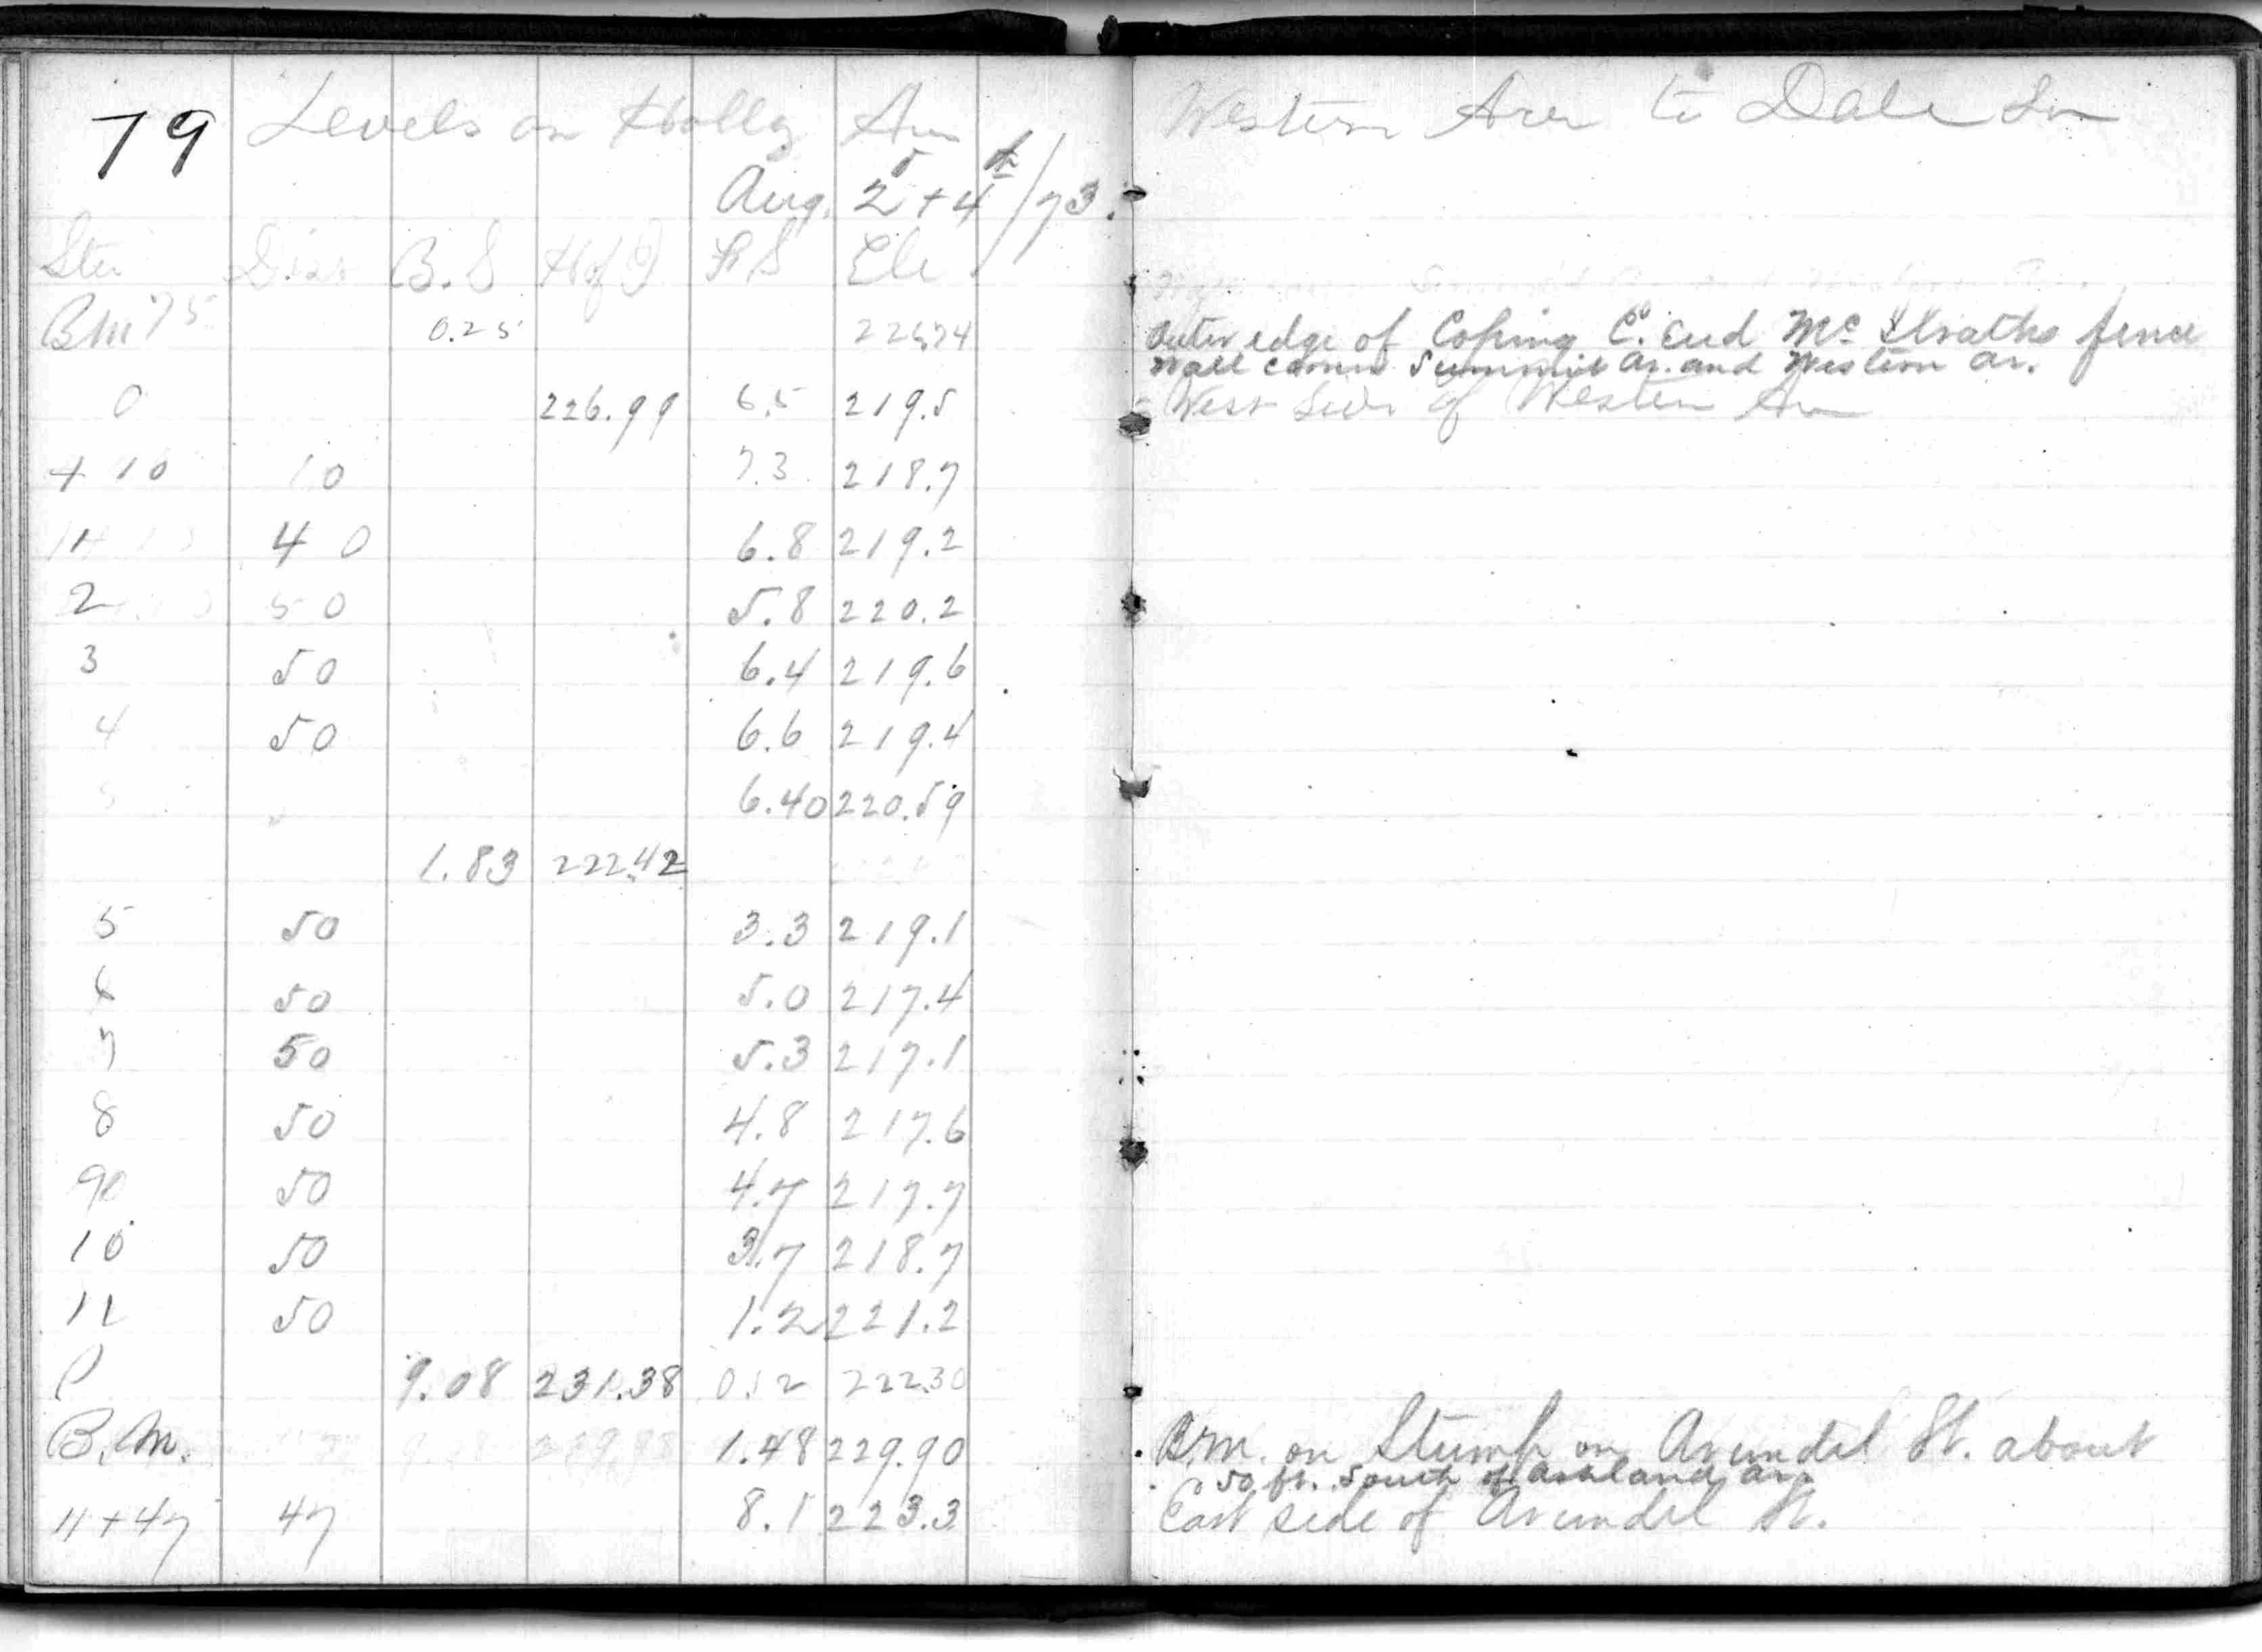 79 Levels on Holly Ave Western Ave to Dale St
Aug. 2 + 4th /73.
Sta Dist B.S H of I F S Ele
BM 75 0.25 226.74 Outer edge of Coping E. End Mc Ilraths fence
Wall corner Summit Av. and Western Av.
0 226.99 6.5 219.5 West Side of Western Av
+ 10 10 7.3 218.7
1 40 6.8 219.2
2 50 5.8 220.2
3 50 6.4 219.6
4 50 6.6 219.4
6.40 220.59
1.83 222.42
5 50 3.3 219.1
6 50 5.0 217.4
7 50 5.3 217.1
8 50 4.8 217.6
9 50 4.7 217.7
10 50 3.7 218.7
11 50 1.2 221.2
P 9.08 231.38 0.12 222.30
B.M. 1.48 229.90 B.M. on Stump on Arundel St. about
50 ft. South of Ashland Av.
11+47 47 8.1 223.3 East side of Arundel St.